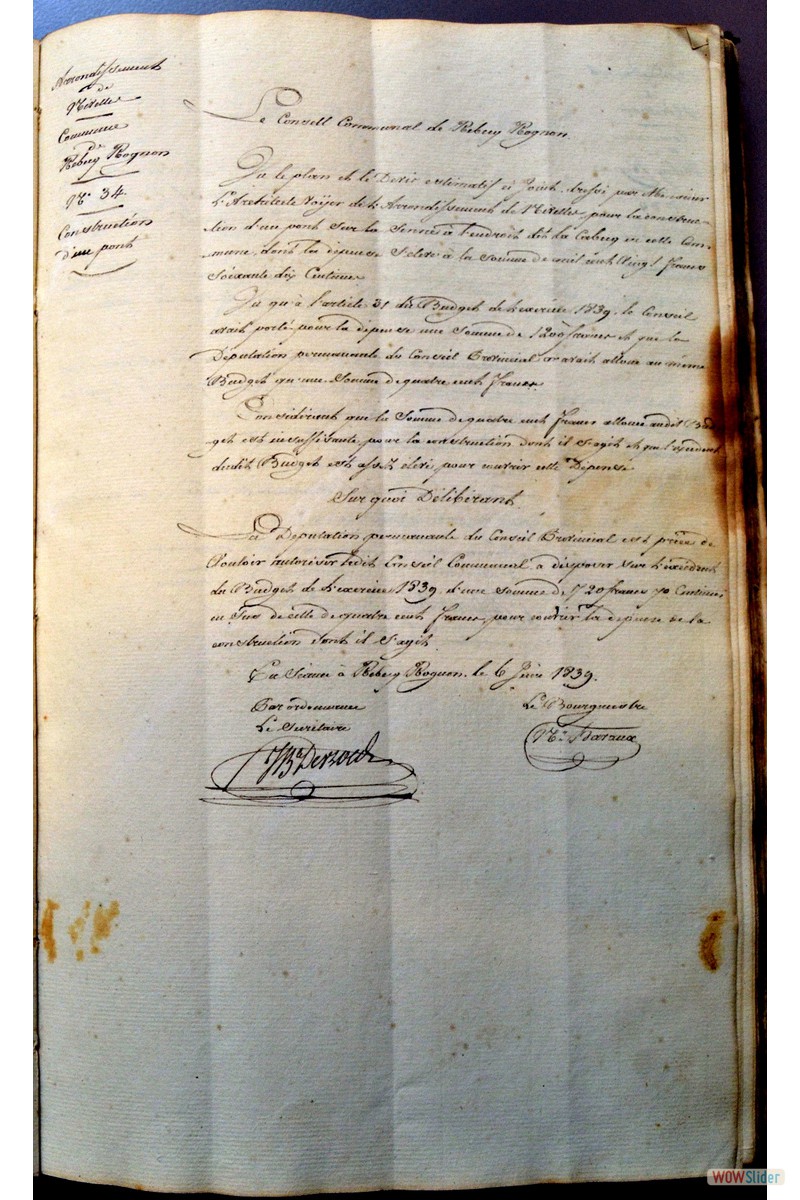 Arrondissement
de
Nivelles
Commune
de
Rebecq Rognon
N° 34.
Construction
d'un pont
Le Conseil Communal de Rebecq Rognon.
Vu le plan et le Devis estimatif ci joint dressé par Monsieur
l'Architecte Voyer de l'Arrondissement de Nivelles, pour la construc-
tion d'un pont sur la Senne à l'endroit dit la en cette Com-
mune, dont la dépense s'élève à la somme de mil cent vingt francs
Soixante dix Centimes
Vu qu'à l'article 31 du Budget de l'exercice 1839, le Conseil
avait porté pour la dépense une somme de 1200 francs et que la
Députation permanante du Conseil Provincial n'avait alloué au même
Budget qu'une Somme de quatre cent francs.
Considérant que la Somme de quatre cent francs allouée audit Bud-
get est insuffisante pour la construction dont il s'agit et que l'excédent
dudit Budget est assez élevé pour couvrir cette Dépense
Sur quoi Délibérant.
La Députation permanante du Conseil Provincial est priée de
Vouloir autoriser ledit Conseil Communal à disposer sur l'excédent
du Budget de l'exercice 1839, d'une somme de 720 francs 70 Centimes
en sus de celle de quatre cent francs, pour couvrir la dépense de la
construction dont il s'agit.
En Séance à Rebecq Rognon, le 6 Juin 1839.
Par ordonnance
Le Bourgmestre
Le Secrétaire
WOWSlider